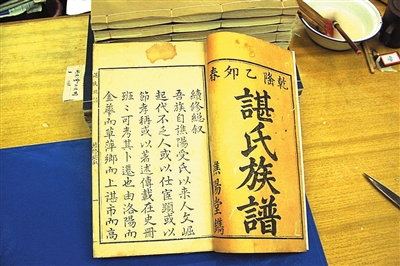 乾隆乙卯春
諶氏族譜
陽堂鐫
續修總叙
吾族自譙陽受氏以来人文崛
起代不乏人或以仕宦顯或以
節孝稱或以著述傳載在史冊
班〻可考其卜遷也由洛陽而
金華而草萍鄉而上諶市而高